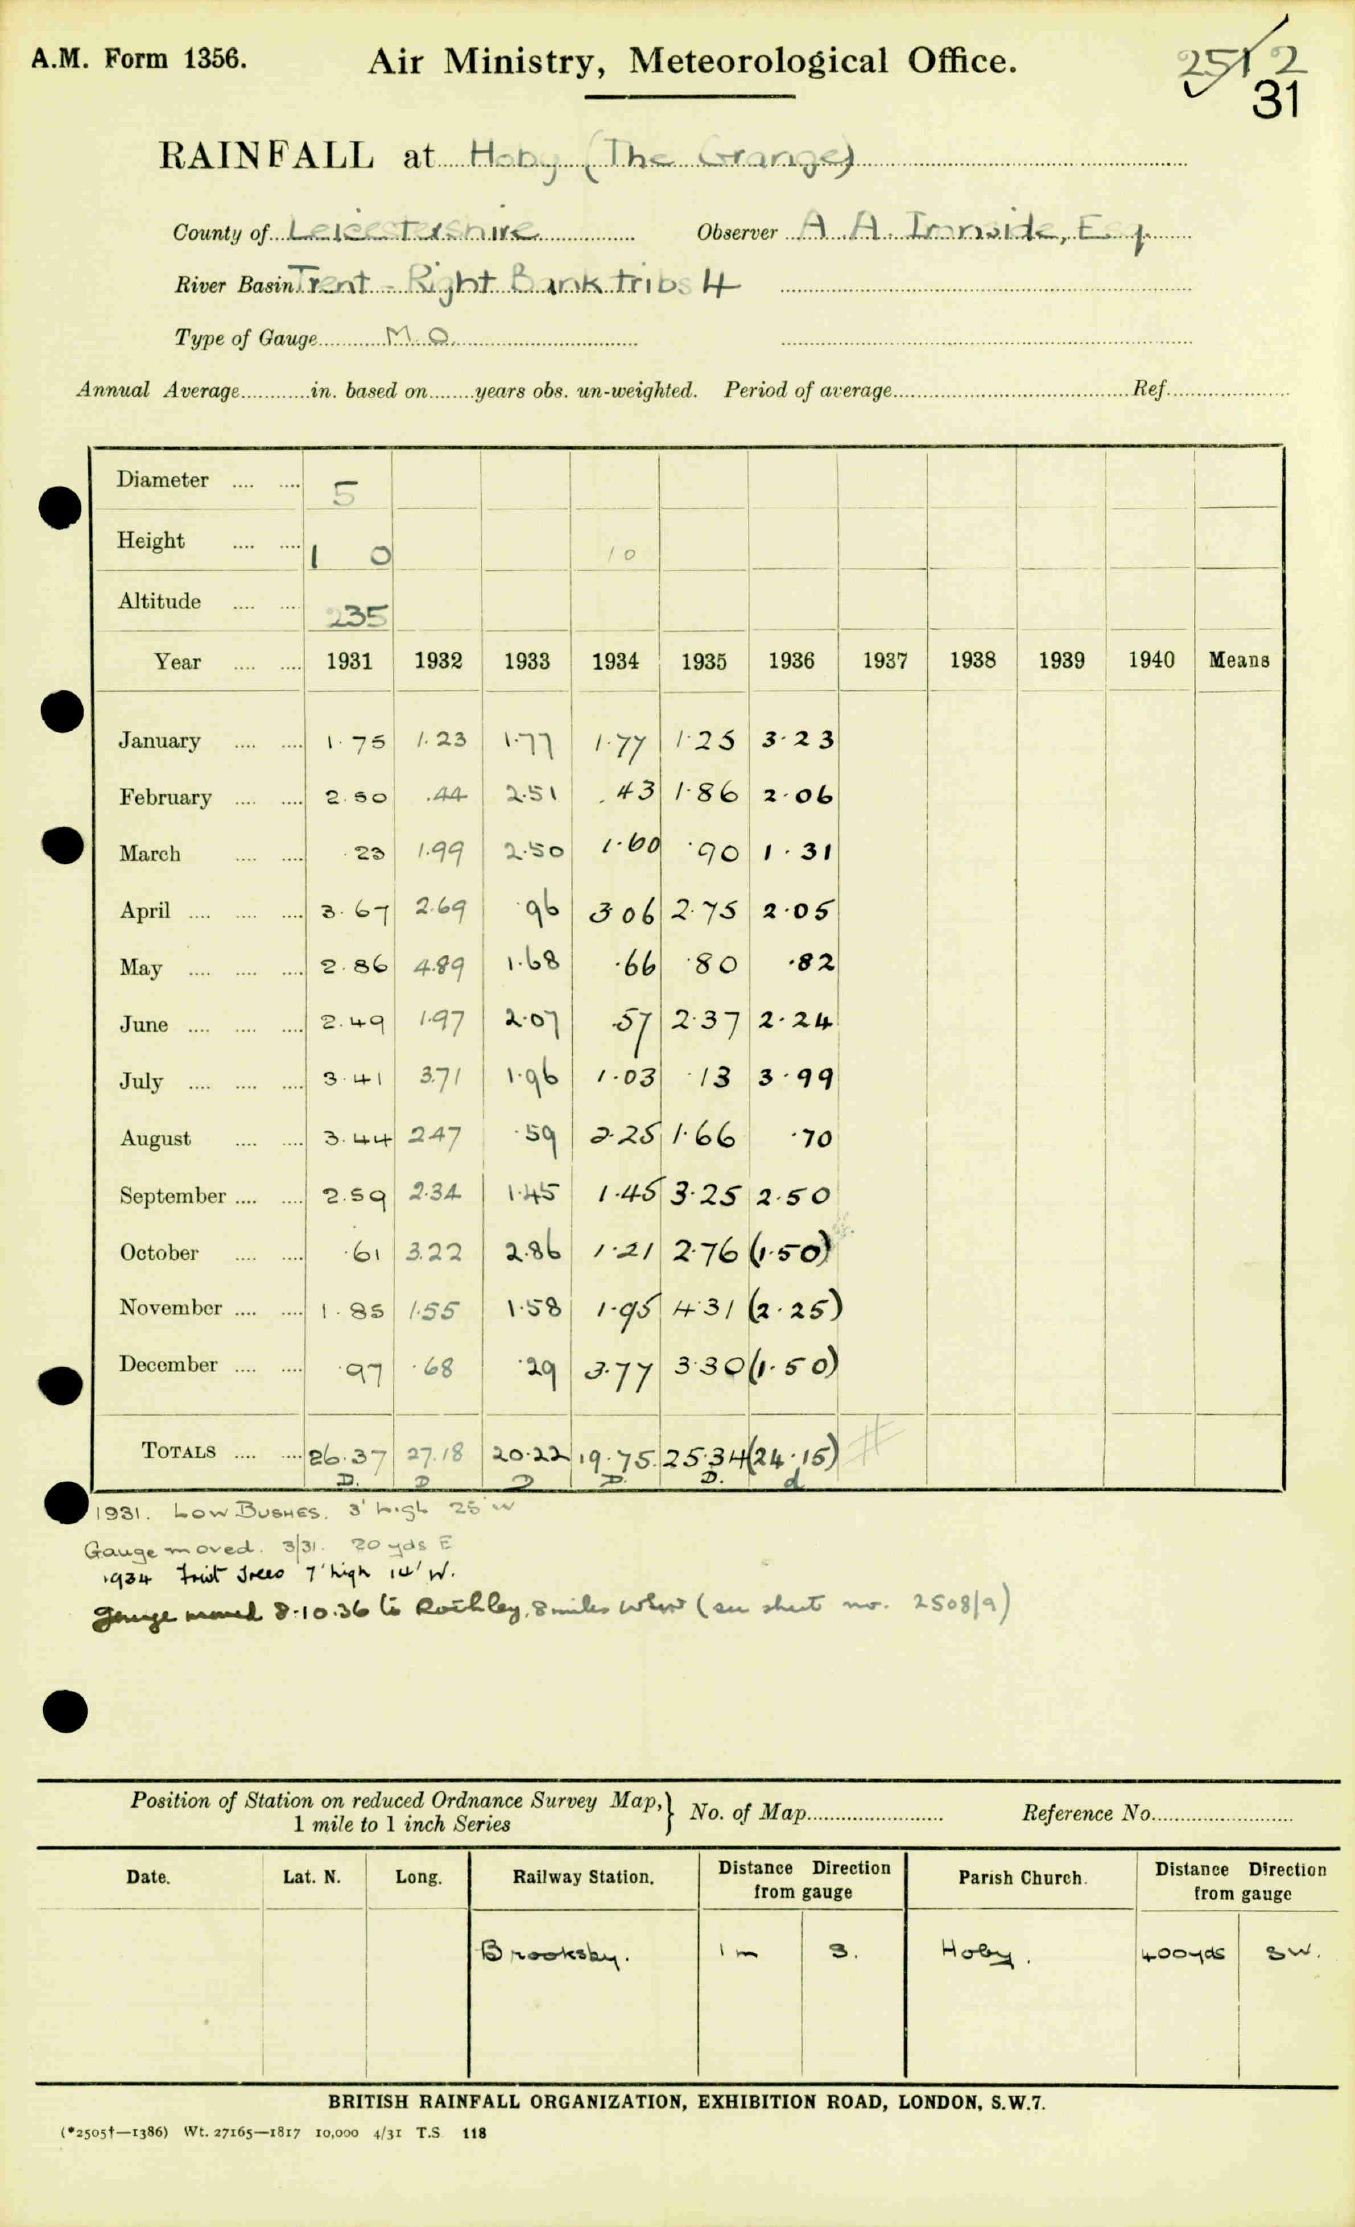 A.M. Form 1356.
Air Ministry, Meteorological Office.
2512
31
RAINFALL at Hoby (The Grange)
County of Leicestershire Observer A. A. Ironside, Esq.
River Basin Trent - Right Bank tribs 4
Type of Gauge M.O.
Annual Average in. based on years obs. un-weighted. Period of average Ref.
Diameter 5
Height 1 0 1 0
Altitude 235
Year 1931 1932 1933 1934 1935 1936 1937 1938 1939 1940 Means
January 1.75 1.23 1.77 1.77 1.25 3.23
February 2.50 .44 2.51 .43 1.86 2.06
March .23 1.99 2.50 1.60 .90 1.31
April 3.67 2.69 .96 3.06 2.75 2.05
May 2.86 4.89 1.68 .66 .80 .82
June 2.49 1.97 2.07 .57 2.37 2.24
July 3.41 3.71 1.96 1.03 .13 3.99
August 3.44 2.47 .59 2.25 1.66 .70
September 2.59 2.34 1.45 1.45 3.25 2.50
October .61 3.22 2.86 1.21 2.76 (1.50)
November 1.85 1.55 1.58 1.95 4.31 (2.25)
December .97 .68 .29 3.77 3.30 (1.50)
TOTALS 26.37 27.18 20.22 19.75 25.34 (24.15) #
D. D D D. D. d
1931. Low Bushes. 3' high 25' W
Gauge moved. 3/31. 20 yds E
1934 Fruit Trees 7' high 14' W.
Gauge moved 8.10.36 to Rothley, 8 miles WSW (see sheet no. 2508/9)
Position of Station on reduced Ordnance Survey Map, 1 mile to 1 inch Series } No. of Map Reference No.
Date. Lat. N. Long. Railway Station. Distance Direction from gauge Parish Church. Distance Direction from gauge
Brooksby. 1 m S. Hoby. 400yds SW.
BRITISH RAINFALL ORGANIZATION, EXHIBITION ROAD, LONDON, S.W.7.
(*2505†—1386) Wt. 27165—1817 10,000 4/31 T.S. 118